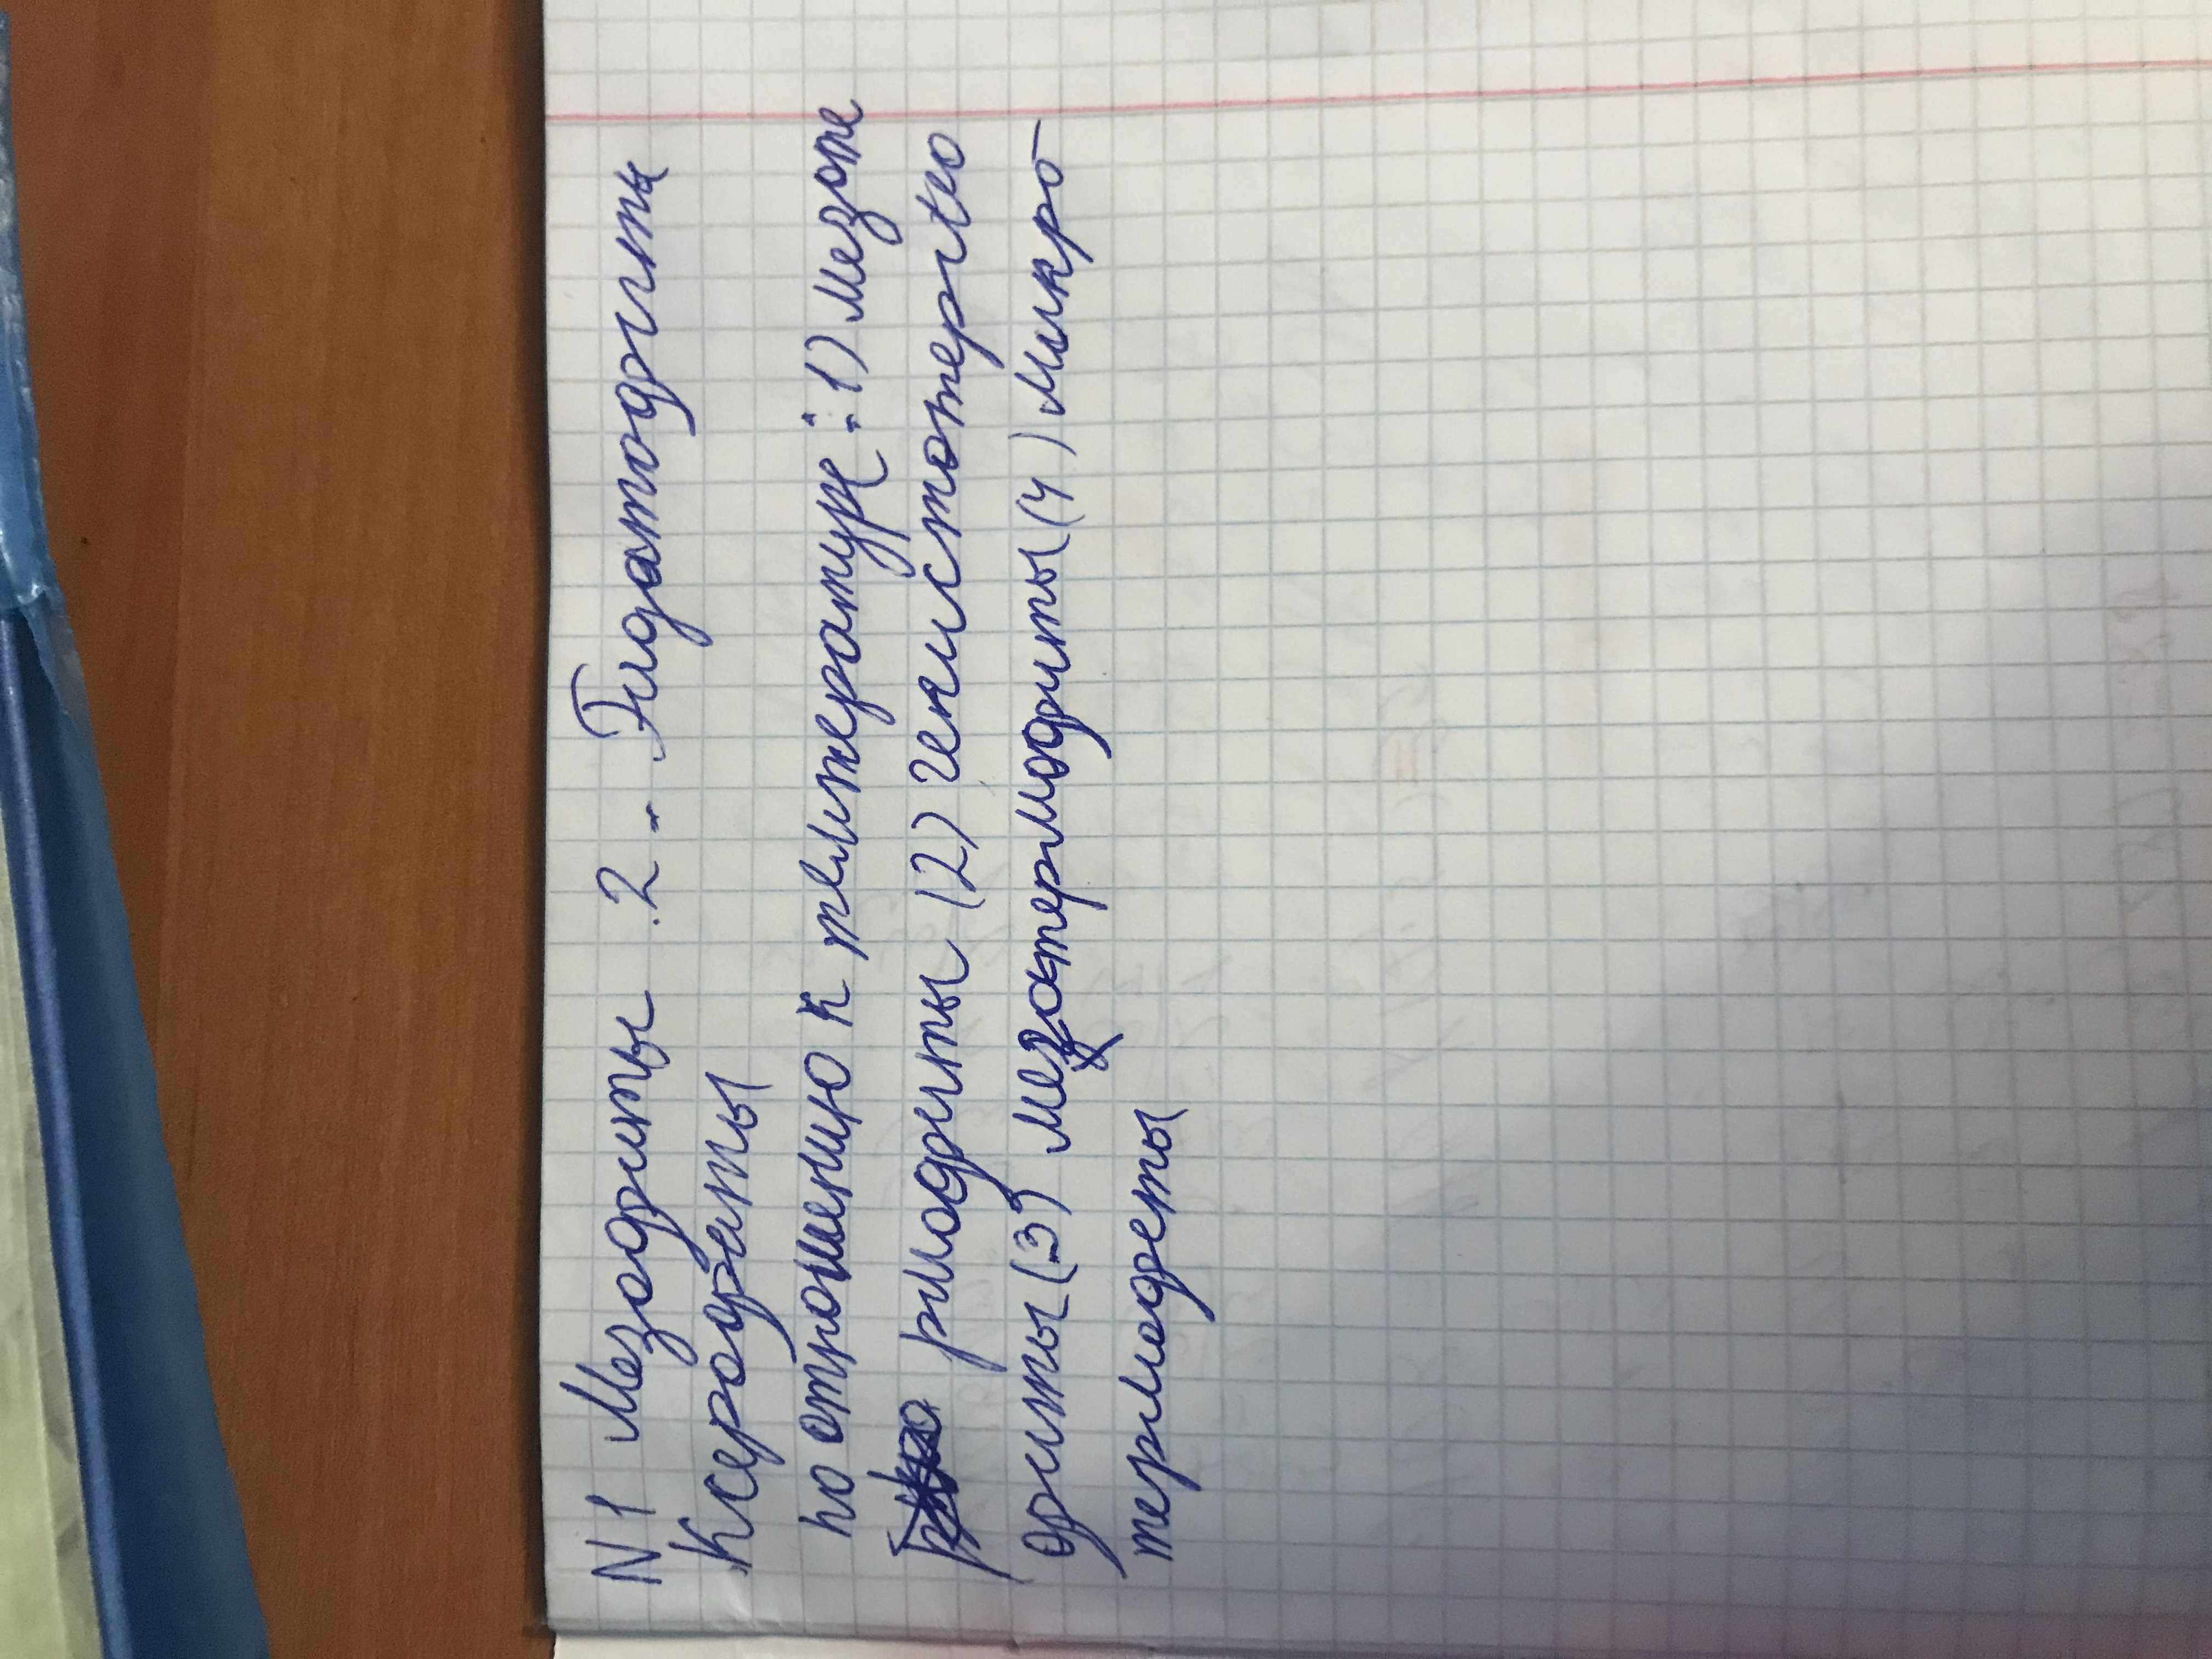 N1 Мезофиты 2 - Гидатофиты
Ксерофеты
по отношению к температуре: 1) Мезоте
рмофиты (2) гекистотермо
фиты (3) мезотермофиты (4) Микро
термофеты